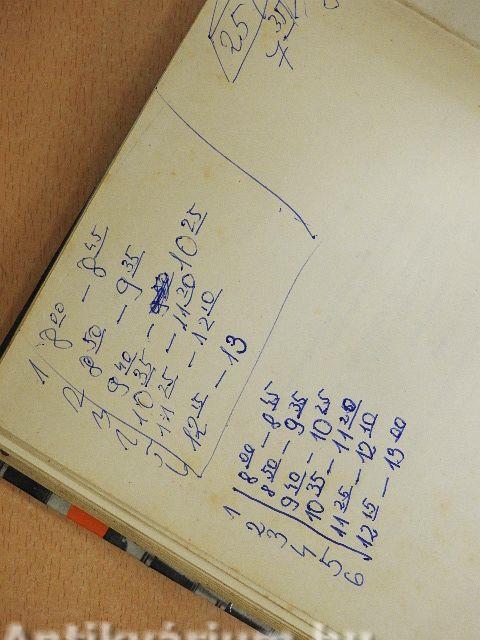 25
7 35
1 8 00 – 8 45
2 8 50 – 9 35
3 9 40 – 10 25
4 10 35 – 11 20
5 11 25 – 12 10
6 12 15 – 13
1 8 00 – 8 45
2 8 50 – 9 35
3 9 40 – 10 25
4 10 35 – 11 20
5 11 25 – 12 10
6 12 15 – 13 00
Antikvárium.hu